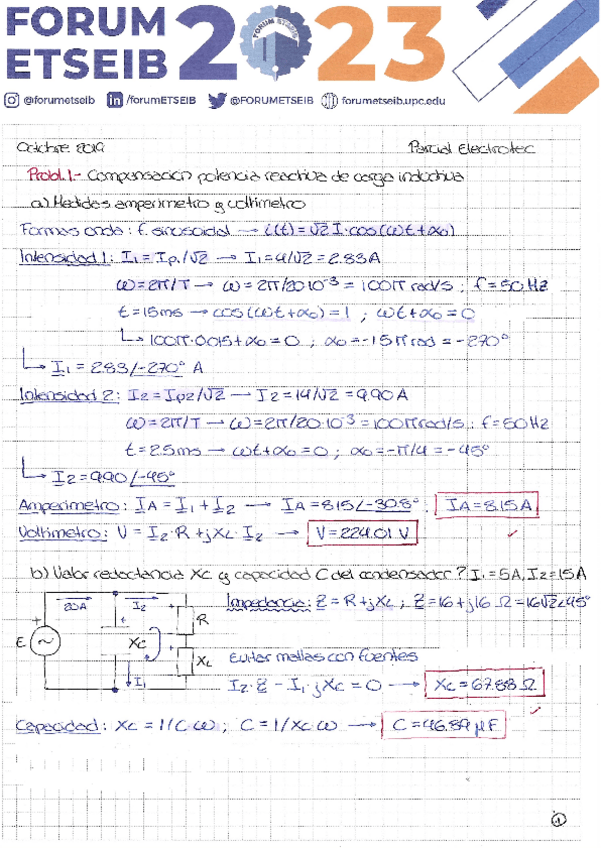 FORUM
ETSEIB 2023
@forumetseib /forumETSEIB @FORUMETSEIB forumetseib.upc.edu
Octubre 2019 Parcial Electrotec
Probl.1.- Compensación potencia reactiva de carga inductiva
a) Medidas amperimetro y voltimetro
Formas onda: f. sinusoidal → i(t) = √2 I·cos(ωt+α₀)
Intensidad 1: I₁ = Ip₁/√2 → I₁ = 4/√2 = 2.83A
ω = 2π/T → ω = 2π/20·10⁻³ = 100π rad/s ; f = 50 Hz
t = 15ms → cos(ωt+α₀) = 1 ; ωt+α₀ = 0
↳ 100π·0.015+α₀ = 0 ; α₀ = -1.5π rad = -270°
↳ I₁ = 2.83/-270° A
Intensidad 2: I₂ = Ip₂/√2 → I₂ = 14/√2 = 9.90 A
ω = 2π/T → ω = 2π/20·10⁻³ = 100π rad/s ; f = 50 Hz
t = 2.5ms → ωt+α₀ = 0 ; α₀ = -π/4 = -45°
↳ I₂ = 9.90/-45°
Amperimetro: IA = I₁ + I₂ → IA = 8.15/-30.8° . IA = 8.15A
Voltimetro: V = I₂·R + jXL·I₂ → V = 224.01 V ✓
b) Valor reactancia Xc y capacidad C del condensador? I₁ = 5A, I₂ = 15A
20A I₂ + R Impedancia: Z = R + jXL ; Z = 16 + j16 Ω = 16√2/45°
E ~ Xc + XL Evitar mallas con fuentes
I₁ I₂·Z - I₁·jXc = 0 → Xc = 67.88 Ω ✓
Capacidad: Xc = 1/Cω ; C = 1/Xc·ω → C = 46.89 μF
1